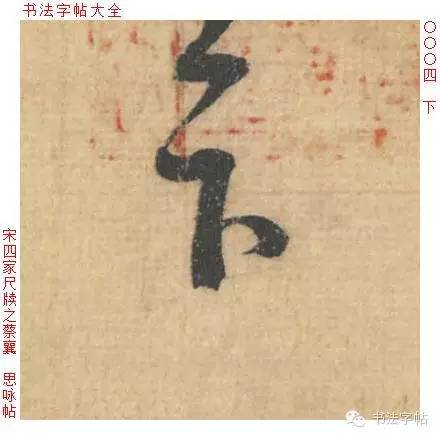 书法字帖大全
〇〇〇四 下
下
宋四家尺牍之蔡襄 思咏帖
书法字帖